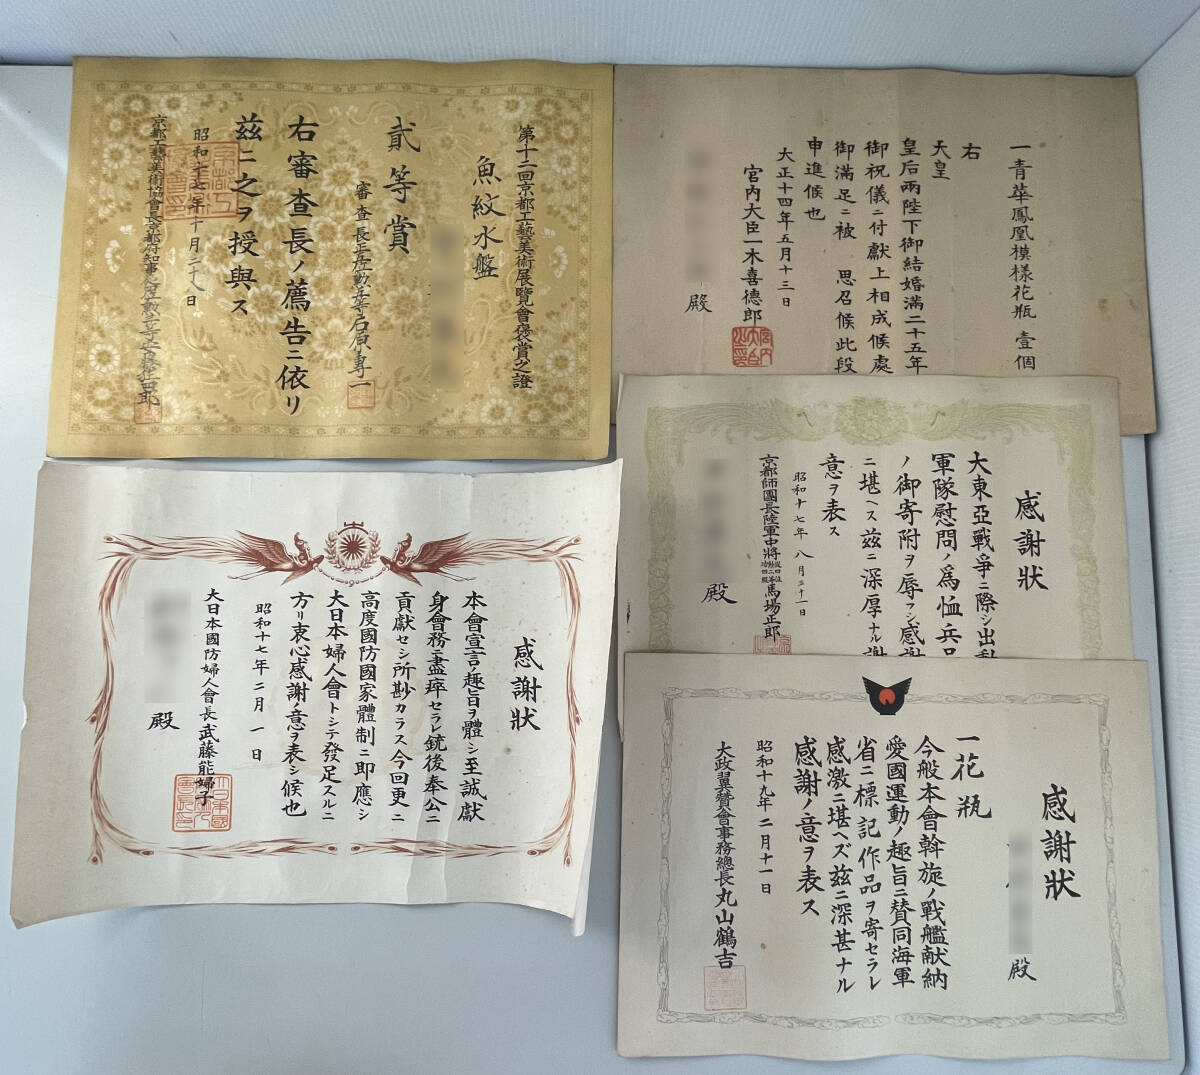 第十二回京都工藝美術展覽會褒賞之證
魚紋水盤
貳等賞
審査長正五位勳五等石原專一
右審査長ノ薦告ニ依リ
茲ニ之ヲ授與ス
昭和十七年十月二十八日
京都工藝美術協會長京都府知事
一青華鳳凰模樣花瓶 壹個
右
天皇
皇后兩陛下御結婚滿二十五年
御祝儀ニ付獻上相成候處
御滿足ニ被 思召候此段
申進候也
大正十四年五月十三日
宮内大臣一木喜德郎
殿
感謝狀
大東亞戰爭ニ際シ出
軍隊慰問ノ爲恤兵品
ノ御寄附ヲ辱フシ感謝
ニ堪ヘス茲ニ深厚ナル謝
意ヲ表ス
昭和十七年八月二十一日
京都師團長陸軍中將馬場正郎
殿
感謝狀
本會宣言ノ趣旨ヲ體シ至誠獻
身會務ニ盡瘁セラレ銃後奉公ニ
貢獻セシ所尠カラス今回更ニ
高度國防國家體制ニ即應シ
大日本婦人會トシテ發足スルニ
方リ衷心感謝ノ意ヲ表シ候也
昭和十七年二月一日
大日本國防婦人會長武藤能婦子
殿
感謝狀
殿
一花瓶
今般本會斡旋ノ戰艦献納
愛國運動ノ趣旨ニ賛同海軍
省ニ標記作品ヲ寄セラレ
感激ニ堪ヘズ茲ニ深甚ナル
感謝ノ意ヲ表ス
昭和十九年二月十一日
大政翼賛會事務總長丸山鶴吉